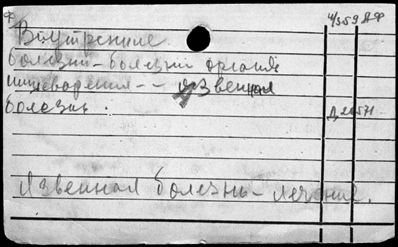 Внутренние
болезни - болезни органов
пищеварения - - язвенная
болезнь.
Язвенная болезнь - лечение.